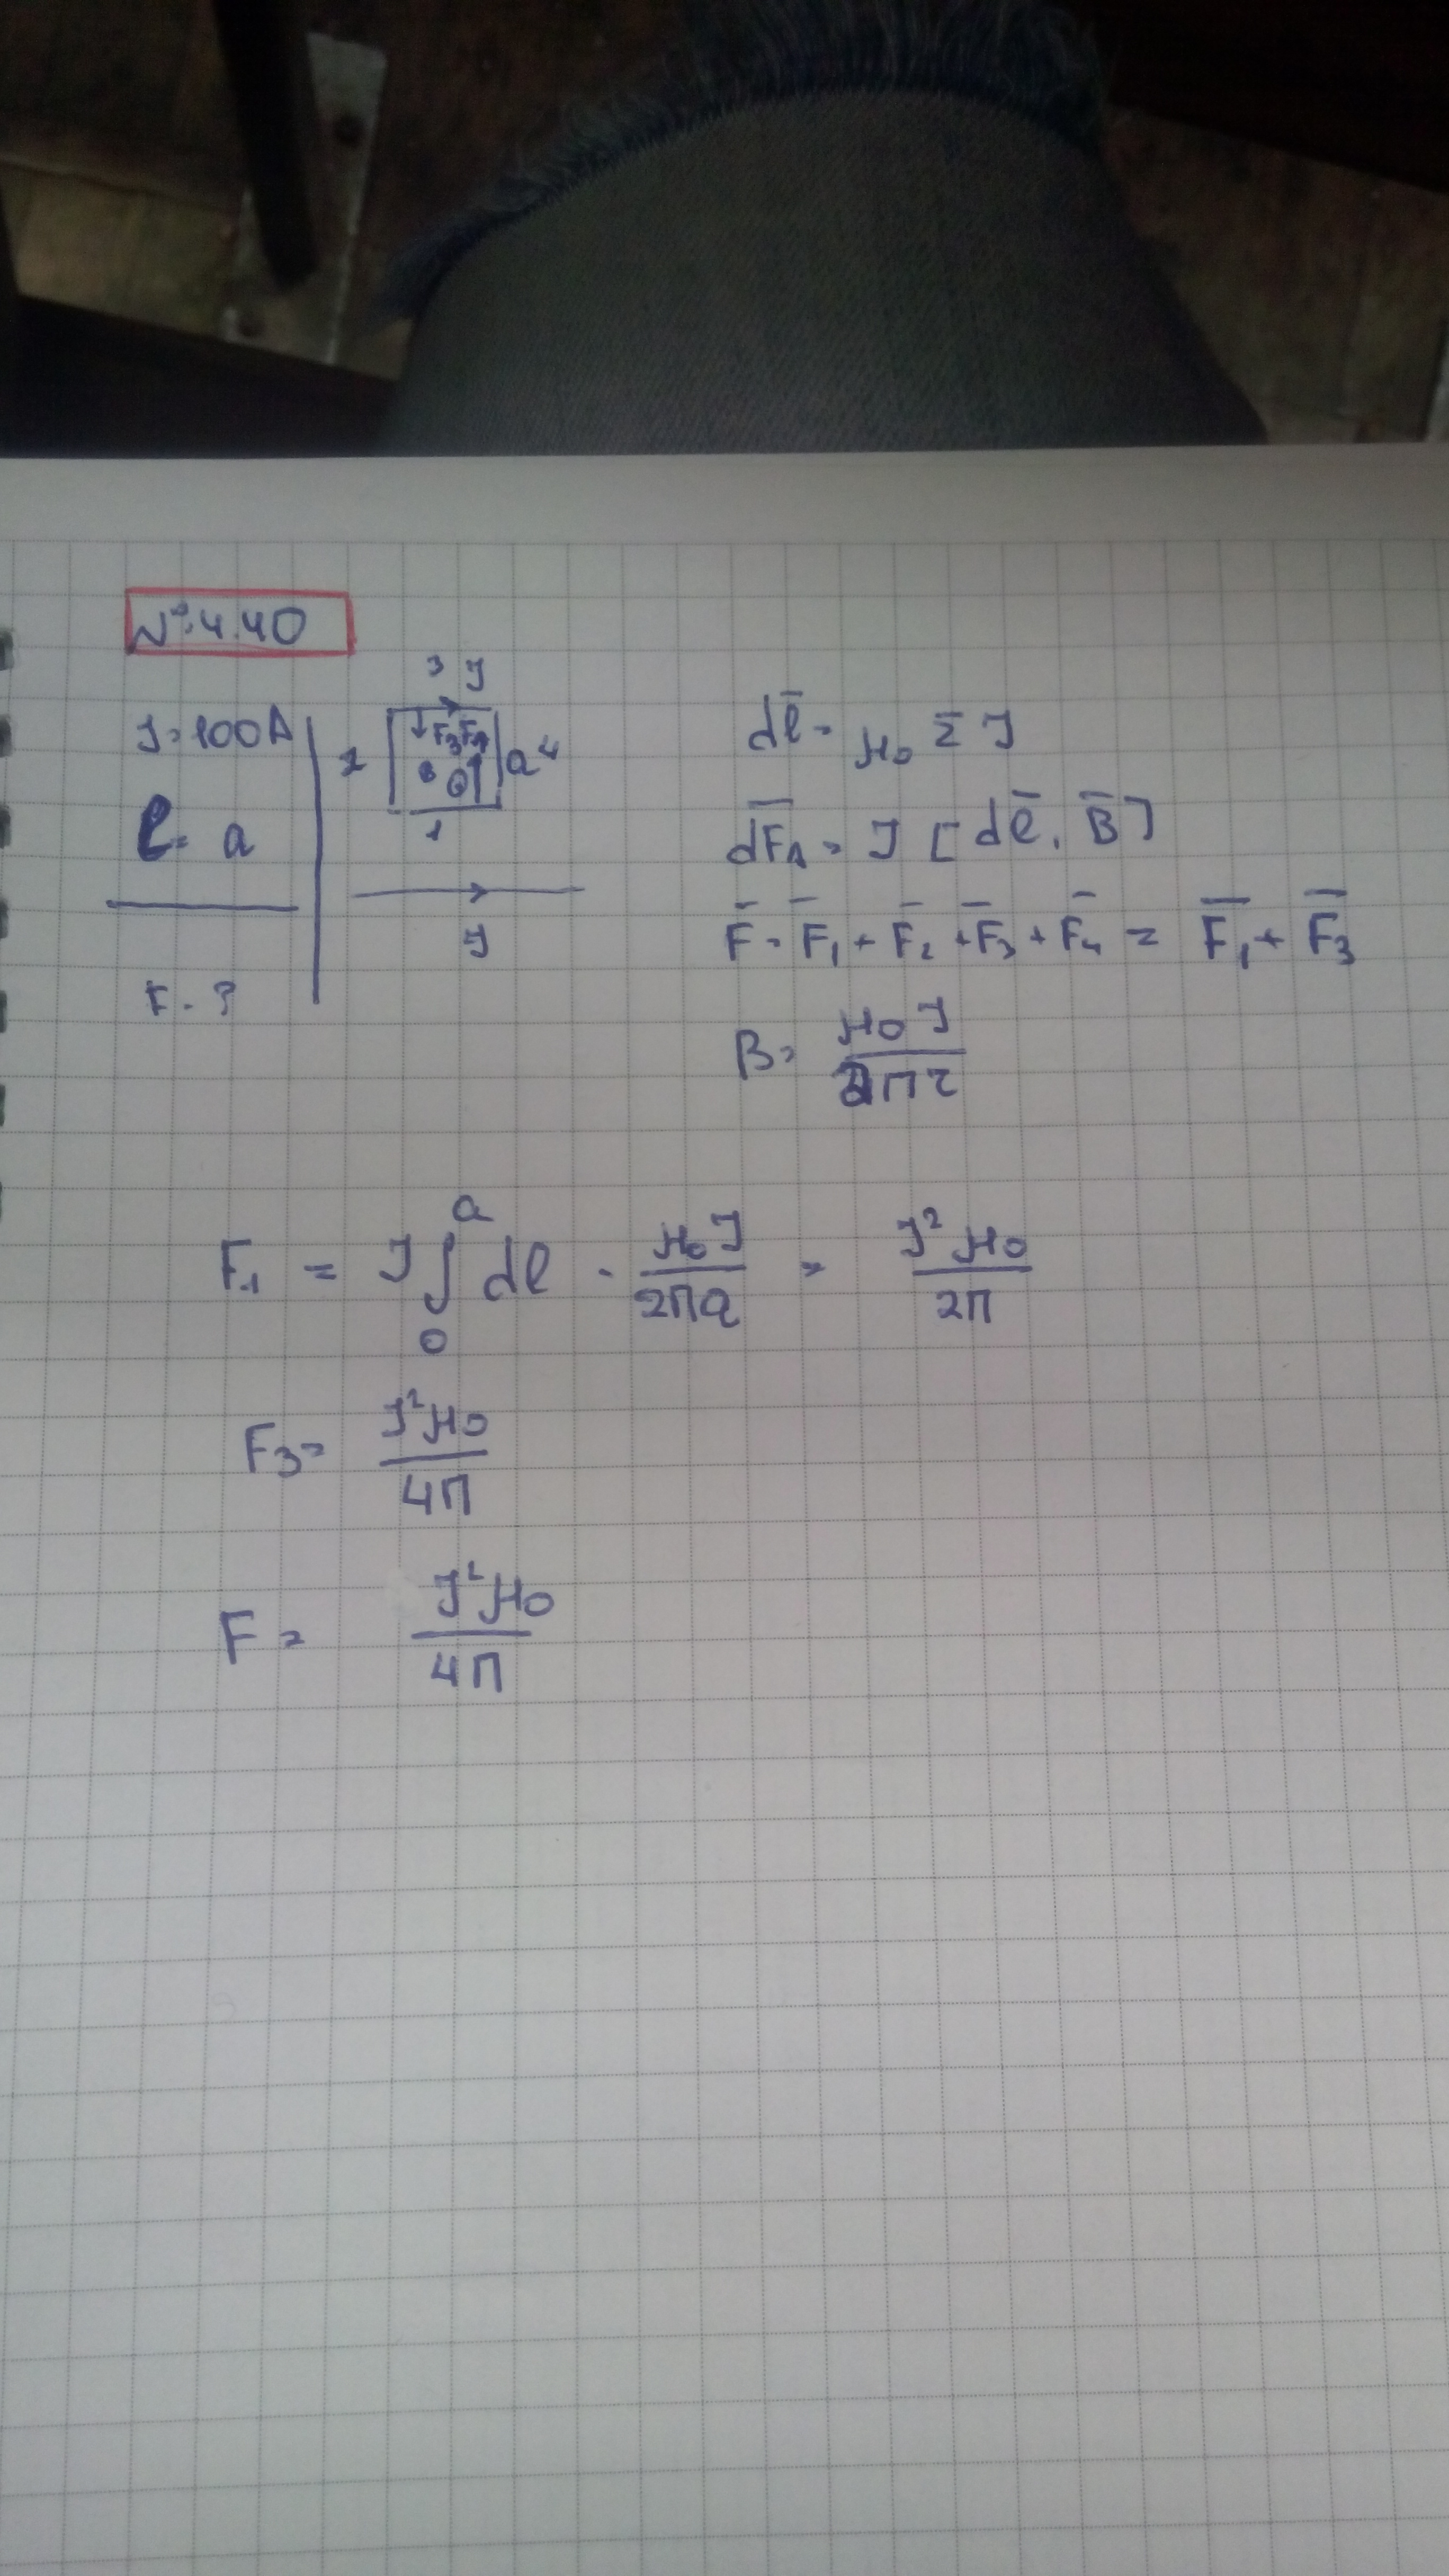 № 4.40
J = 100A
l = a
F - ?
3 J
2 F₃ F₁ a 4
B
1
J
dl̄ = μ₀ Σ J
dF̄A = J [dl̄, B̄]
F̄ = F̄₁ + F̄₂ + F̄₃ + F̄₄ = F̄₁ + F̄₃
B = μ₀J / 2πr
F₁ = J ∫₀ᵃ dl · μ₀J / 2πa = J²μ₀ / 2π
F₃ = J²μ₀ / 4π
F = J²μ₀ / 4π